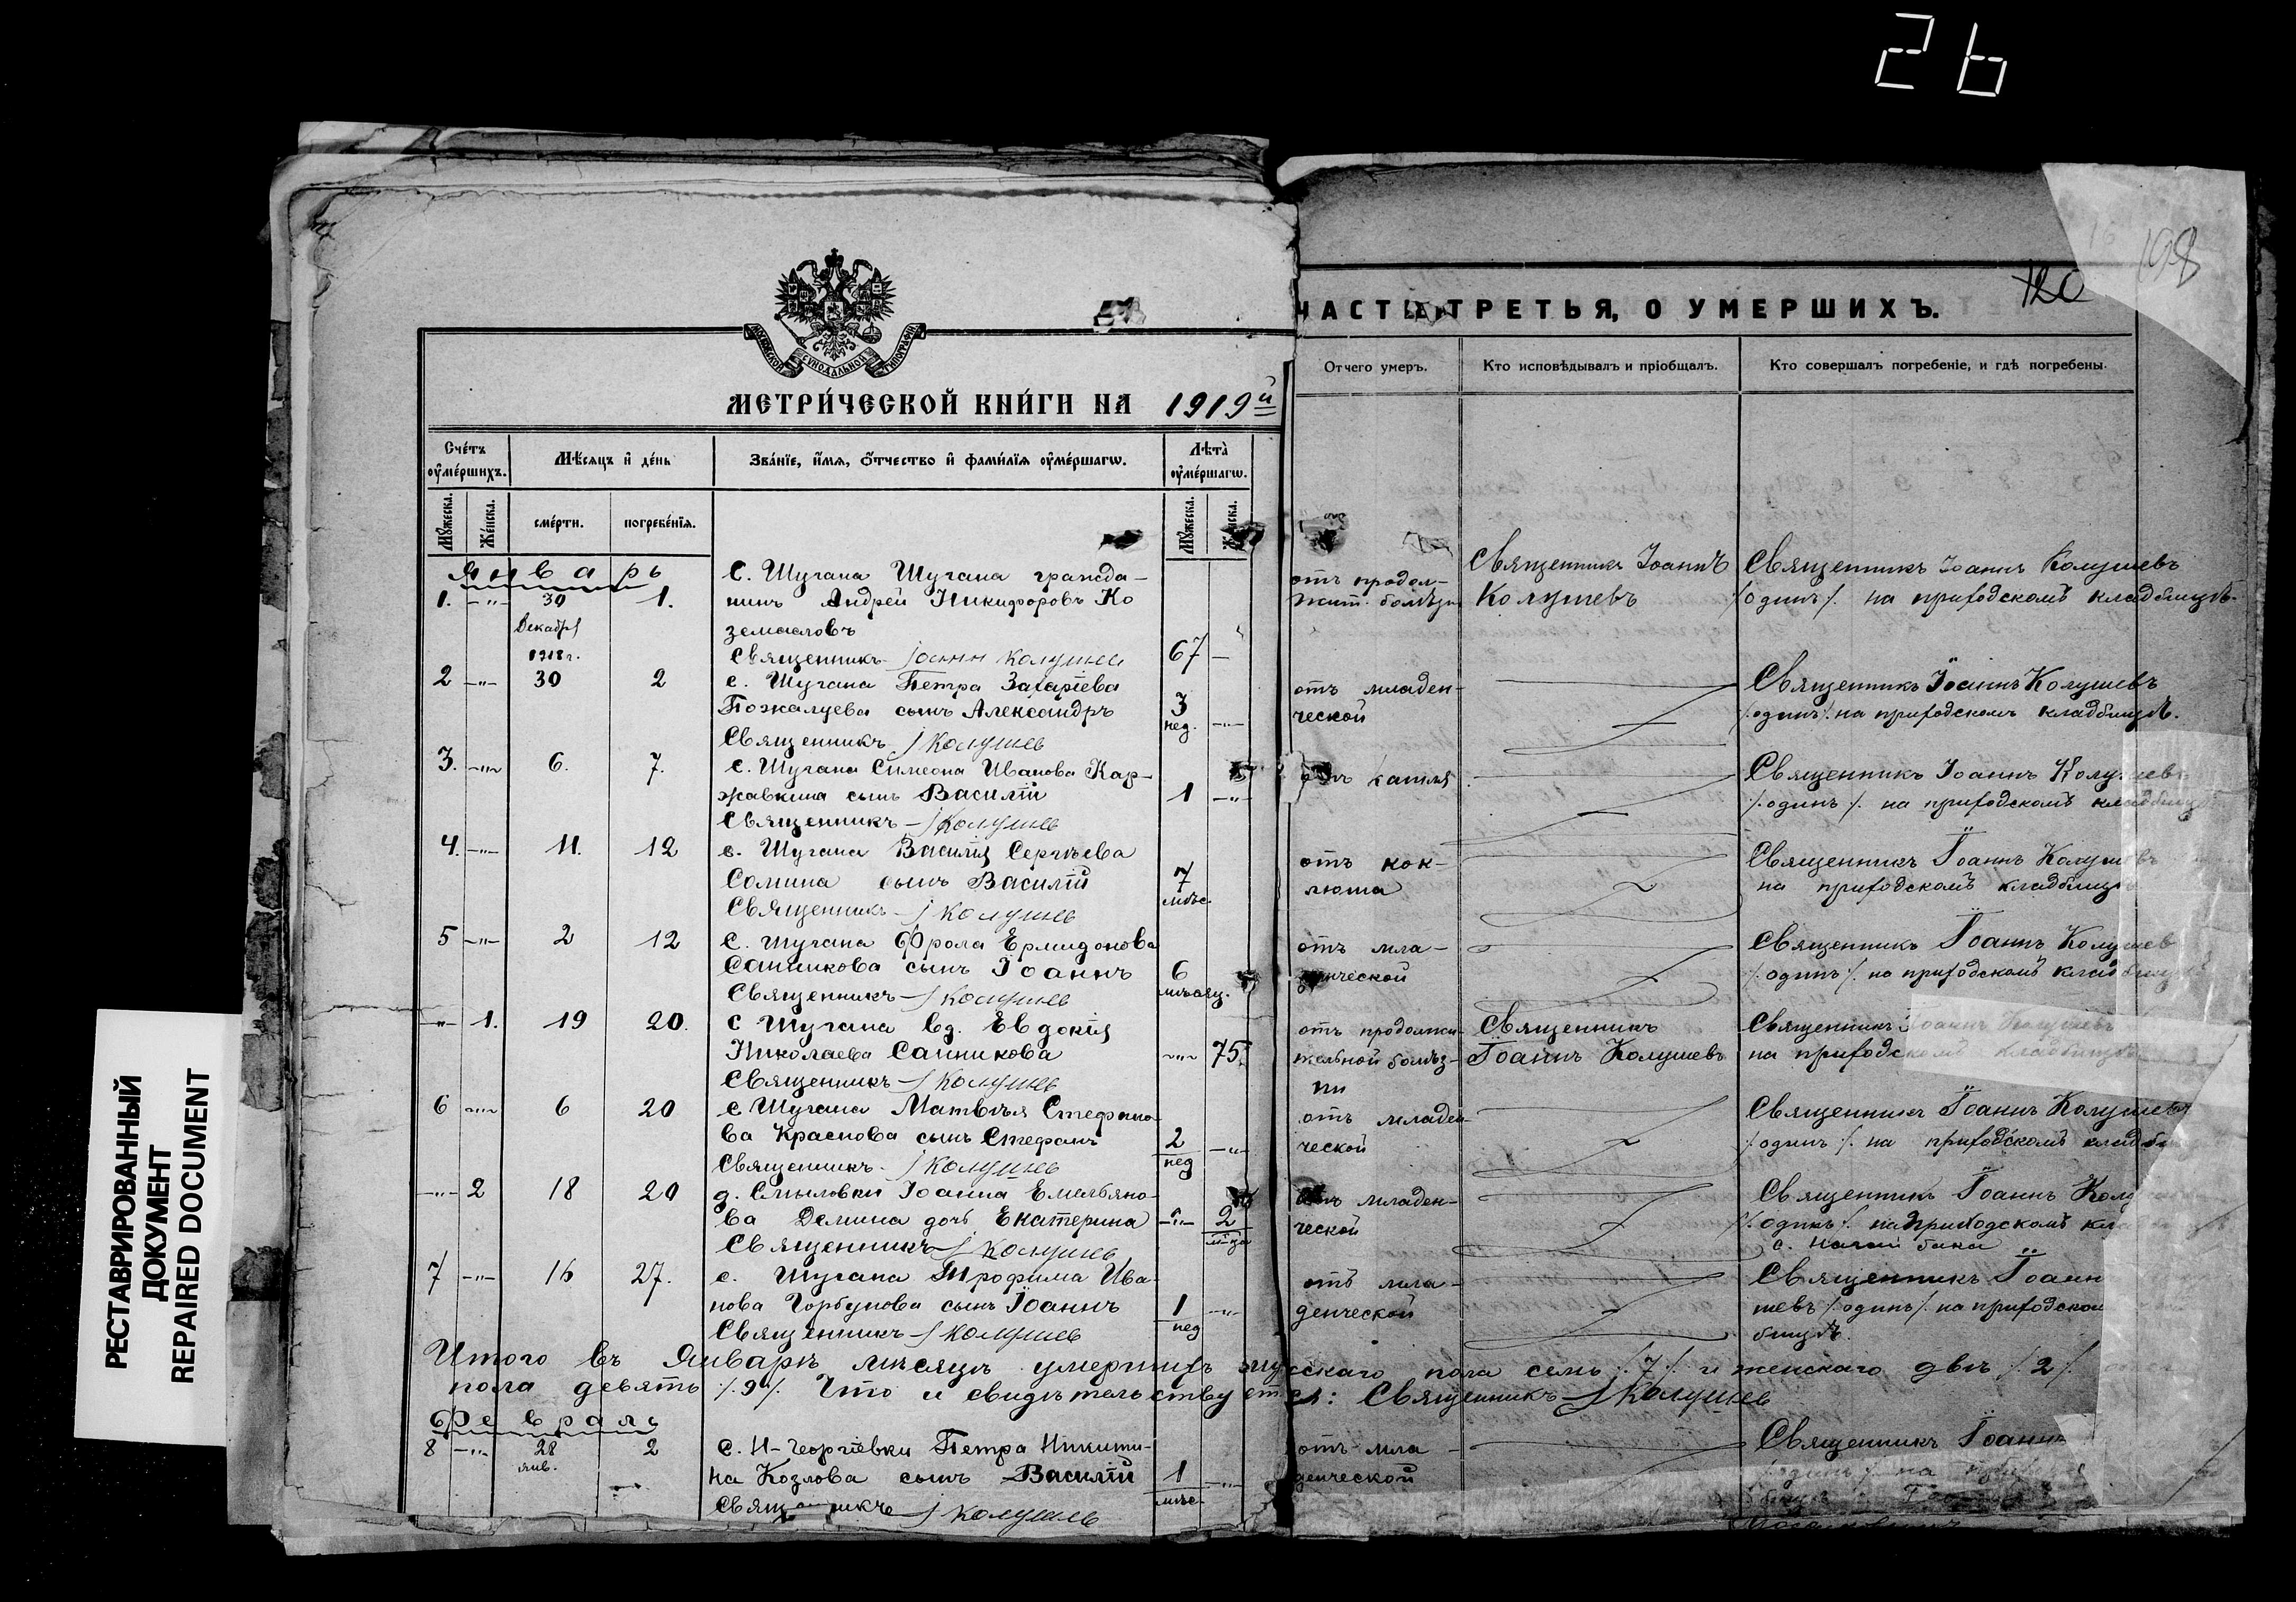 26
РЕСТАВРИРОВАННЫЙ
ДОКУМЕНТ
REPAIRED DOCUMENT
198
120
МОСКОВСКОЙ СУНОДАЛЬНОЙ ТИПОГРАФІИ
МЕТРИ́ЧЕСКОЙ КНИ́ГИ НА 1919й
ЧАСТЬ ТРЕТЬЯ, О УМЕРШИХЪ.
Счéтъ оумéршихъ.
Мѣ́сяцъ и҆ дéнь
Звáнїе, и҆́мя, ѻ҆́тчество и҆ фамѝлїя оумéршагѡ.
Лѣ́та̀ оумéршагѡ.
Отчего умеръ.
Кто исповѣдывалъ и пріобщалъ.
Кто совершалъ погребеніе, и гдѣ погребены.
Мꙋ́жеска.
Жéнска.
смéрти.
погребéнїя.
Мꙋ́жеска.
Жéнска.
Январь
1. -"- 30 Декабр 1918 г. 1.
С. Шугана Шугана гражда-
нинъ Андрей Никифоровъ Ко
земасловъ
Священникъ Іоанн Колушев
67 -
отъ продол-
жит. болѣзн
Священникъ Іоаннъ
Колушевъ
Священникъ Іоаннъ Колушевъ
/один/. на приходскомъ кладбищѣ.
2 -"- 30 2
с. Шугана Петра Захаріева
Пожалуева сынъ Александръ
Священникъ Колушев
3 нед. -"-
отъ младен-
ческой
Священникъ Іоаннъ Колушевъ
/.одинъ/. на приходскомъ кладбищѣ.
3. -"- 6. 7.
с. Шугана Симеона Иванова Кар-
жавкина сынъ Василій
Священникъ - Колушев
1 -"-
отъ кашля
Священникъ Іоаннъ Колушев
/.одинъ/. на приходскомъ кладбищѣ
4. -"- 11. 12
с. Шугана Василія Сергѣева
Сомина сынъ Василій
Священникъ - Колушев
7 мѣс.
отъ кок-
люша
Священникъ Іоаннъ Колушевъ
на приходскомъ кладбищѣ
5 -"- 2 12
С. Шугана Фрола Ермидонова
Санникова сынъ Іоаннъ
Священникъ - Колушев
6 мѣсяц.
отъ мла-
денческой
Священникъ Іоаннъ Колушев
/.одинъ/. на приходскомъ кладбищ
-"- 1. 19 20.
С Шугана вд. Евдокія
Николаева Санникова
Священникъ - Колушев
-"- 75.
отъ продолжи-
тельной болѣз-
ни
Священникъ
Іоаннъ Колушевъ
Священникъ Іоаннъ Колушевъ
на приходскомъ кладбищѣ
6 -"- 6 20
с Шугана Матвѣя Стефано-
ва Краснова сынъ Стефанъ
Священникъ - Колушев
2 нед -"-
отъ младен
ческой
Священникъ Іоаннъ Колушевъ
/.одинъ/. на приходскомъ кладби
-"- 2 18 20
д. Смыловки Іоанна Емельяно-
ва Демина дочь Екатерина
Священникъ - Колушев
-"- 2 м-ца
отъ младен-
ческой
Священникъ Іоаннъ Колу
/.одинъ/. на приходскомъ кла
7 -"- 16 27.
с. Шугана Трофима Ива-
нова Горбунова сынъ Іоаннъ
Священникъ - Колушев
1 нед -"-
отъ мла-
денческой
Священникъ Іоанн
шевъ /.одинъ/. на приходском
бищѣ.
Итого въ Январѣ мѣсяцѣ умершихъ мужескаго пола семь /.7/. и женскаго двѣ /.2/.
пола девять /.9/. Что и свидѣтельствуется: Священникъ Колушев
Февраль
8 -"- 28 янв. 2
с. Н-Георгіевки Петра Никити-
на Козлова сынъ Василій
Священникъ Колушев
1 мѣс. -"-
отъ мла-
денческой
Священникъ Іоаннъ
/.одинъ/. на